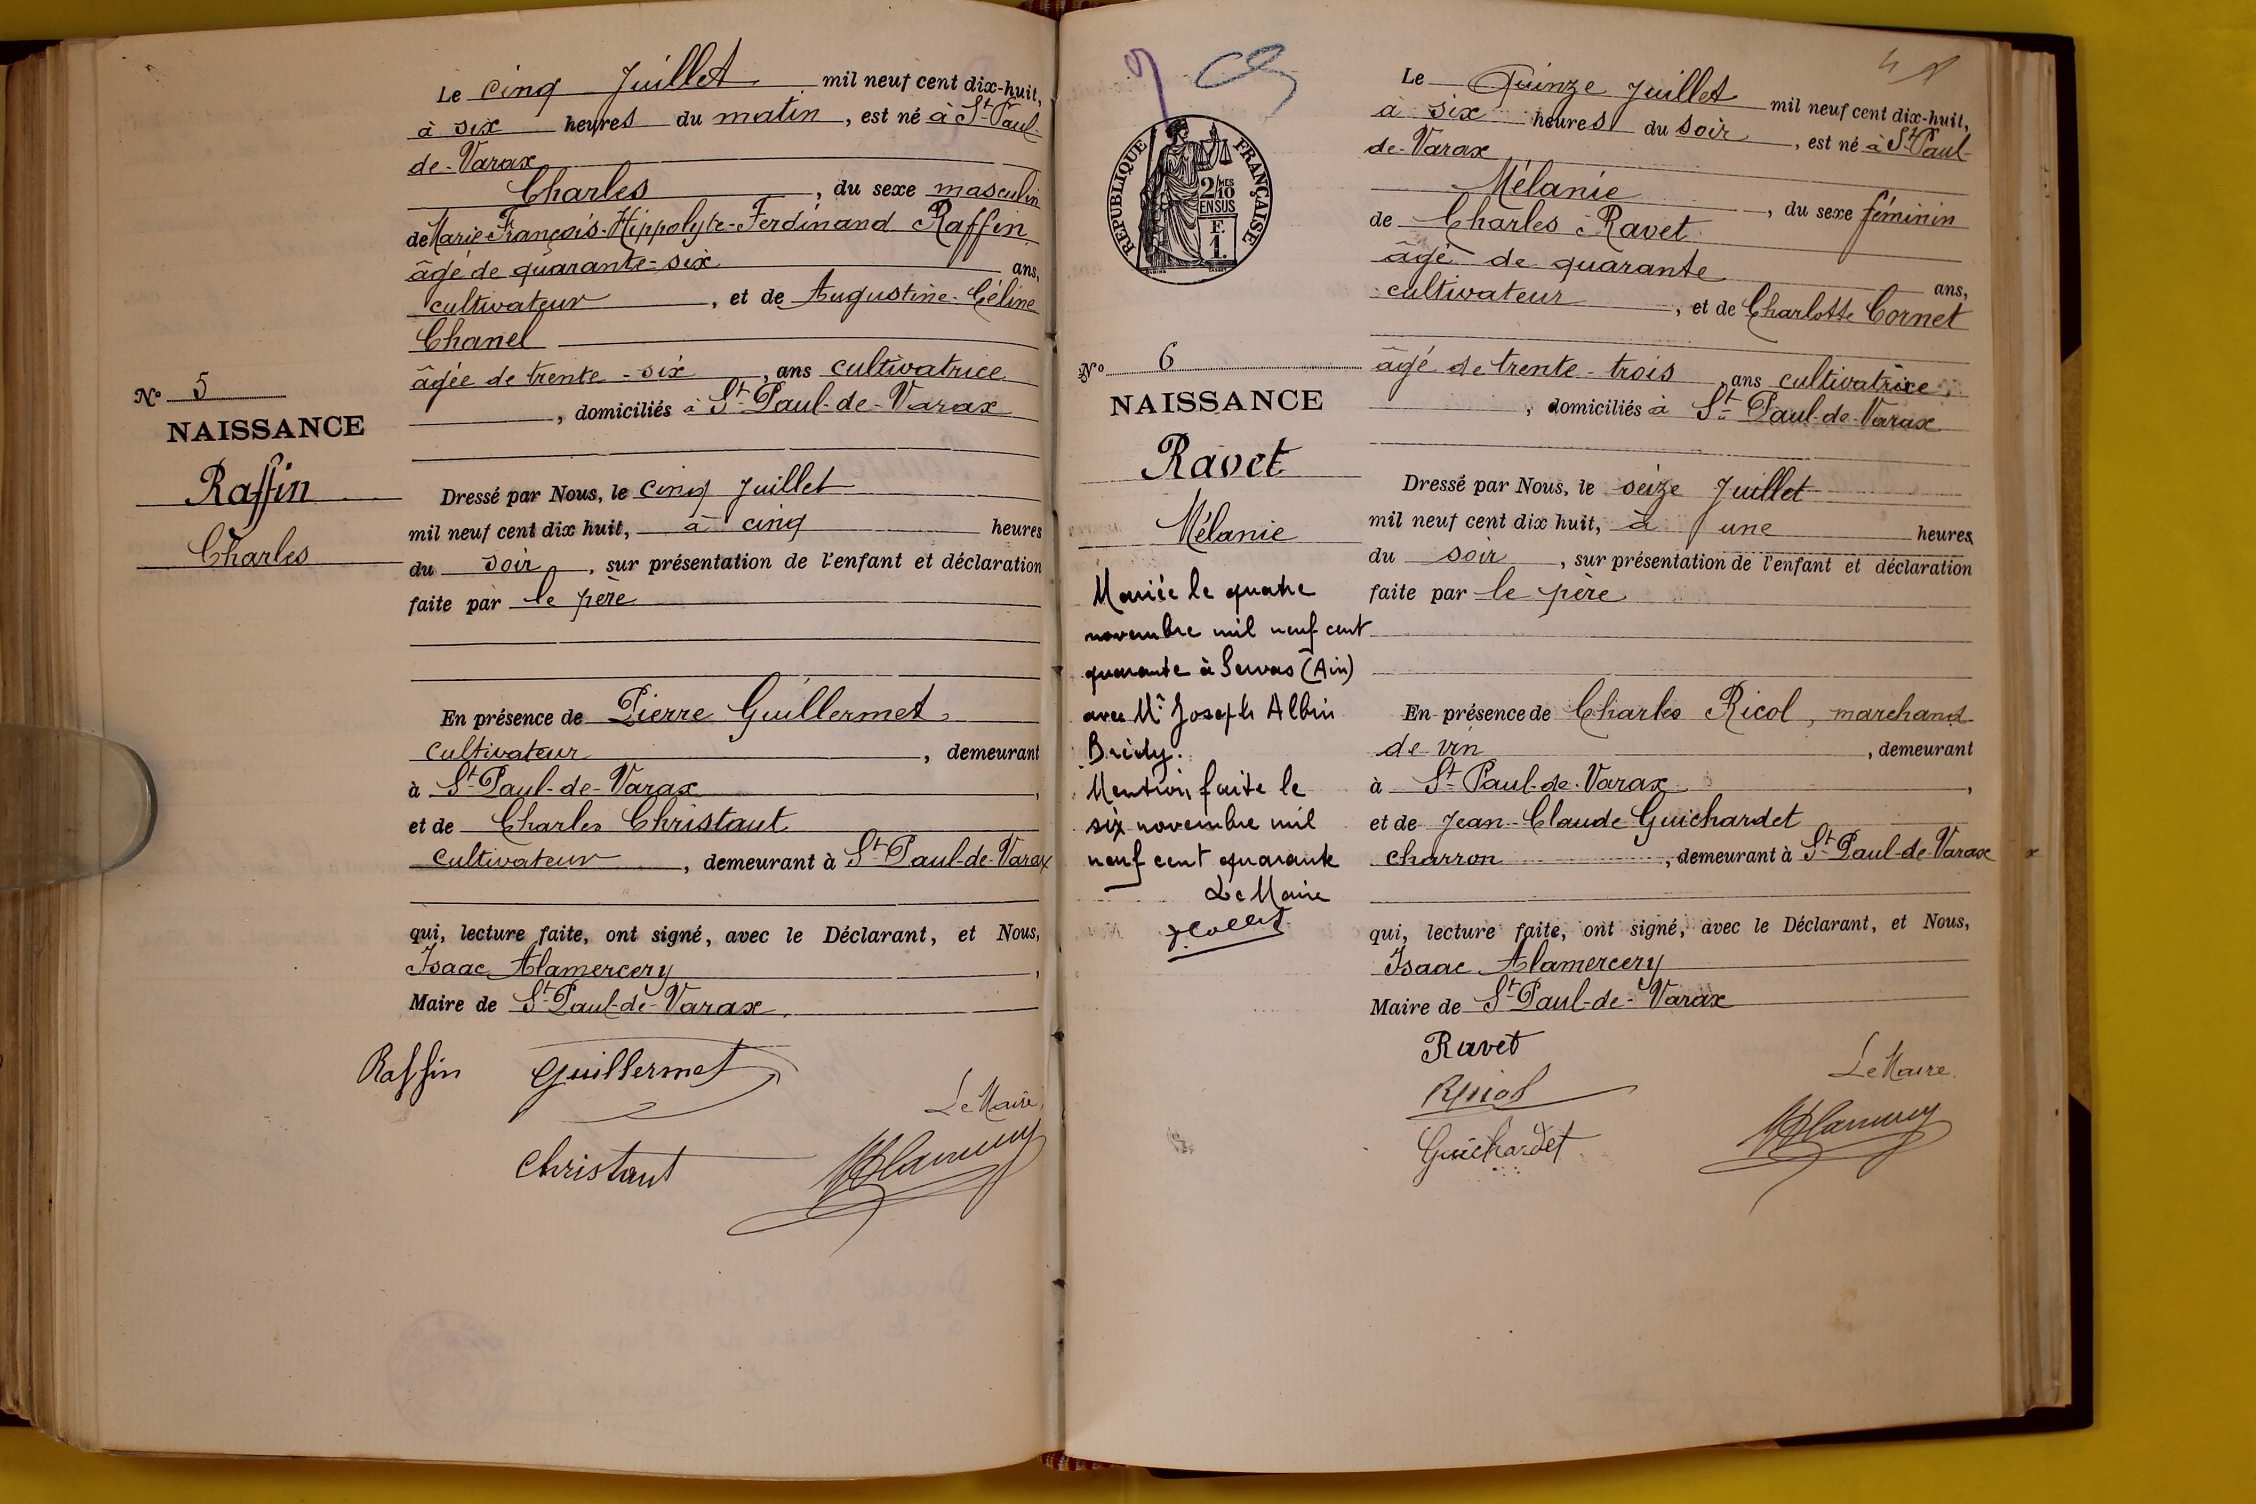 Le cinq Juillet mil neuf cent dix-huit,
à six heures du matin, est né à St-Paul-
de-Varax
Charles, du sexe masculin
de Marie-François-Hippolyte-Ferdinand Raffin
âgé de quarante-six ans,
cultivateur, et de Augustine-Céline
Chanel
âgée de trente-six, ans cultivatrice
, domiciliés à St-Paul-de-Varax
No 5
NAISSANCE
Raffin
Charles
Dressé par Nous, le cinq Juillet
mil neuf cent dix huit, à cinq heures
du soir, sur présentation de l'enfant et déclaration
faite par le père
En présence de Pierre Guillermet,
cultivateur, demeurant
à St-Paul-de-Varax,
et de Charles Christaut
cultivateur, demeurant à St-Paul-de-Varax
qui, lecture faite, ont signé, avec le Déclarant, et Nous,
Isaac Alamercery,
Maire de St-Paul-de-Varax.
Raffin Guillermet
Le Maire,
Christaut
RÉPUBLIQUE FRANÇAISE
2/10 MES
EN SUS
F.
1.
No 6
NAISSANCE
Ravet
Mélanie
Mariée le quatre
novembre mil neuf cent
quarante à Servas (Ain)
avec Mr Joseph Albin
Brédy.
Mention faite le
six novembre mil
neuf cent quarante
Le Maire
Le Quinze Juillet mil neuf cent dix-huit,
à six heures du soir, est né à St-Paul-
de-Varax
Mélanie, du sexe féminin
de Charles Ravet
âgé de quarante ans,
cultivateur, et de Charlotte Cornet
âgé de trente-trois, ans cultivatrice,
, domiciliés à St-Paul-de-Varax
Dressé par Nous, le seize Juillet
mil neuf cent dix huit, à une heures
du soir, sur présentation de l'enfant et déclaration
faite par le père
En présence de Charles Ricol, marchand
de vin, demeurant
à St-Paul-de-Varax,
et de Jean-Claude Guichardet
charron, demeurant à St-Paul-de-Varax
qui, lecture faite, ont signé, avec le Déclarant, et Nous,
Isaac Alamercery
Maire de St-Paul-de-Varax
Ravet
Le Maire.
Guichardet